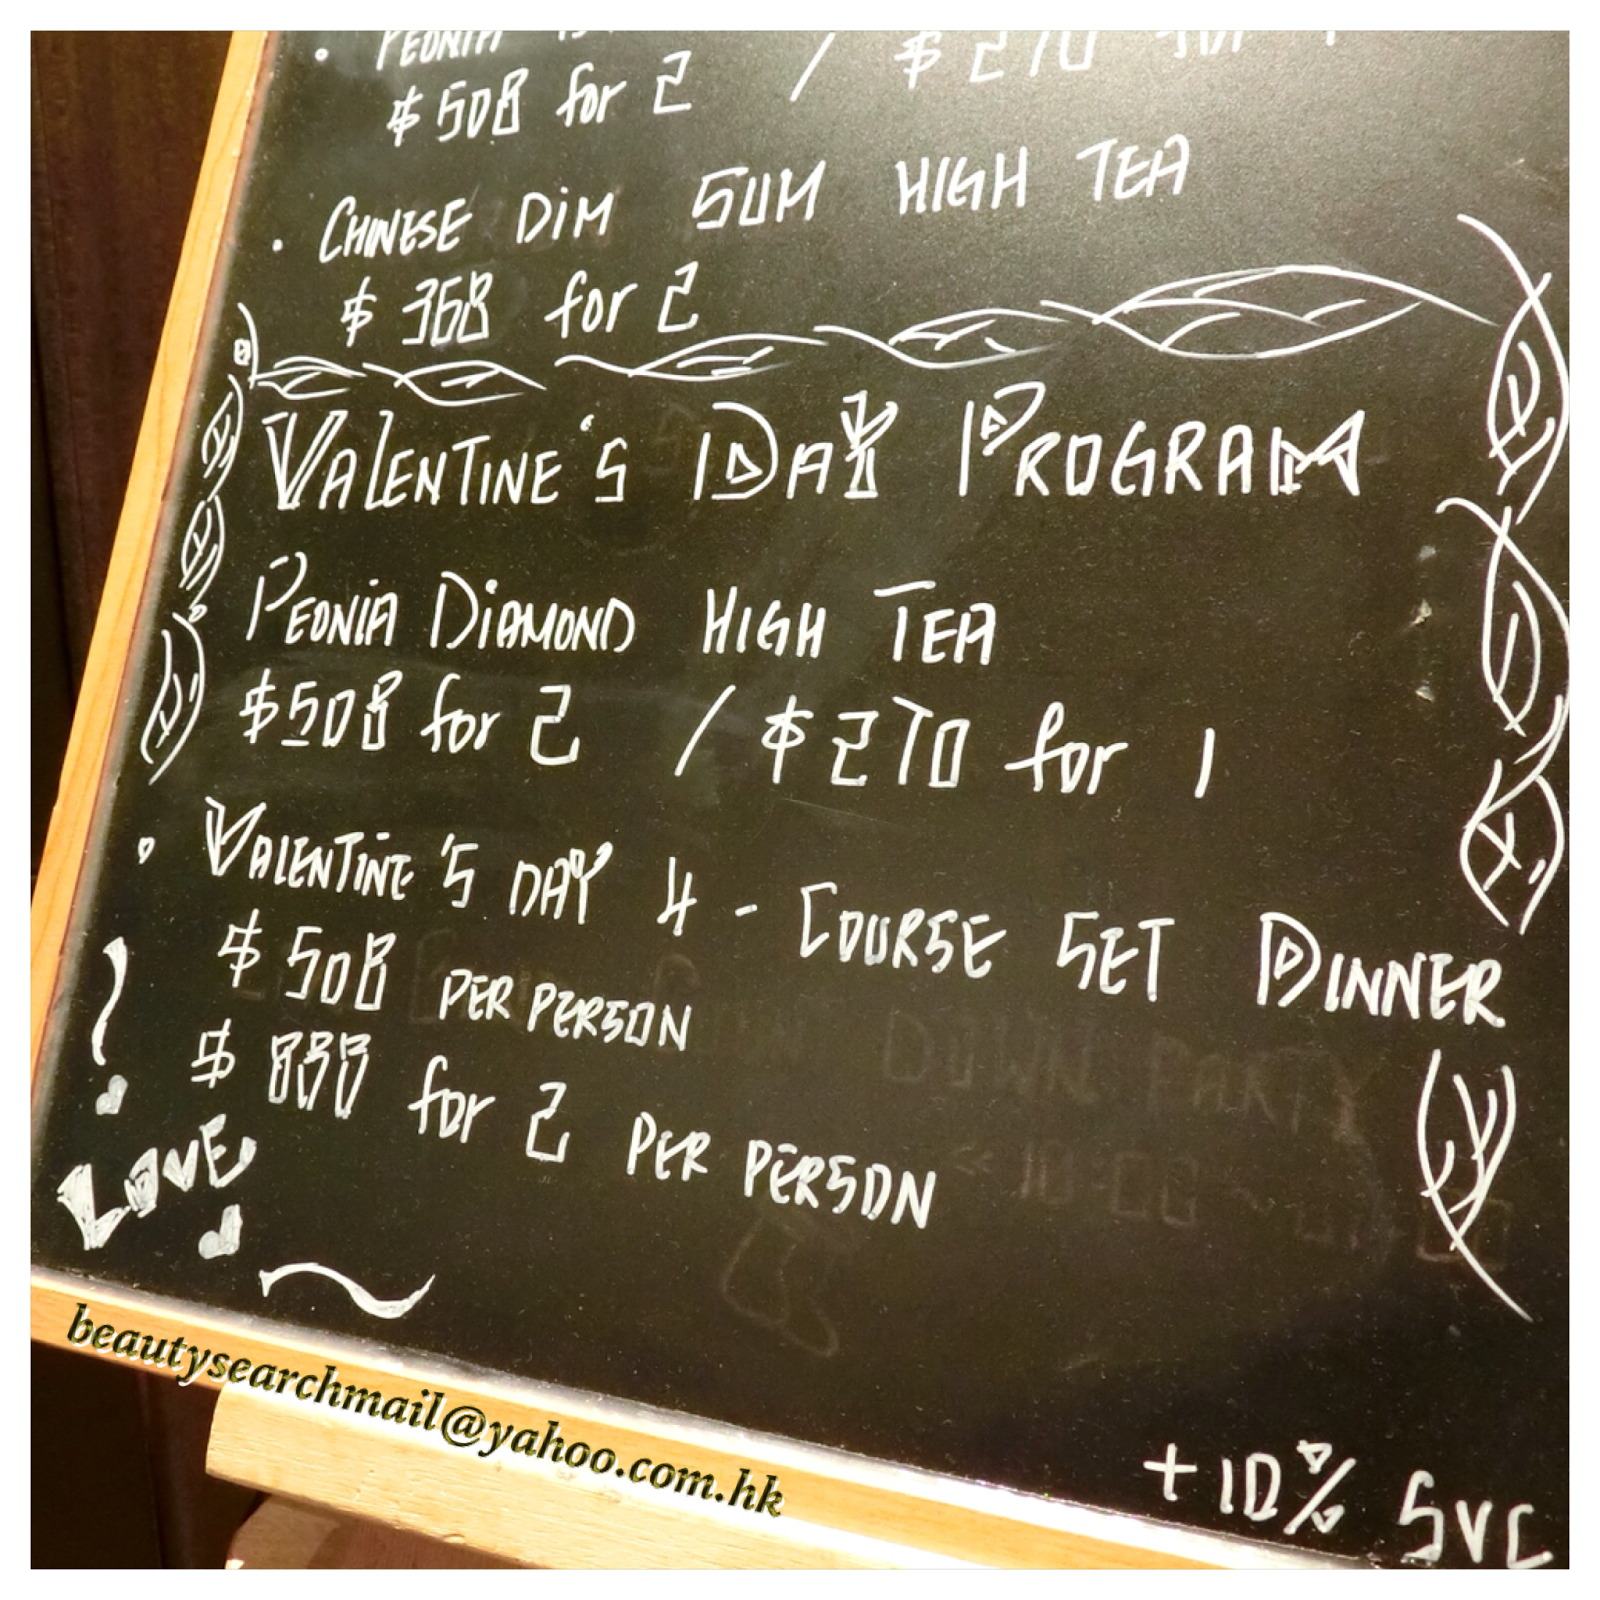 • PEONIA
$508 for 2 / $270 for 1
• CHINESE DiM SUM HIGH TEA
$368 for 2
VALENTINE'S DAY PROGRAM
PEONIA DiAMOND HIGH TEA
$508 for 2 / $270 for 1
• VALENTINE'S DAY 4-COURSE SET DINNER
$508 PER PERSON
$888 for 2 PER PERSON
DOWN PARTY
LOVE
+10% SVC
beautysearchmail@yahoo.com.hk